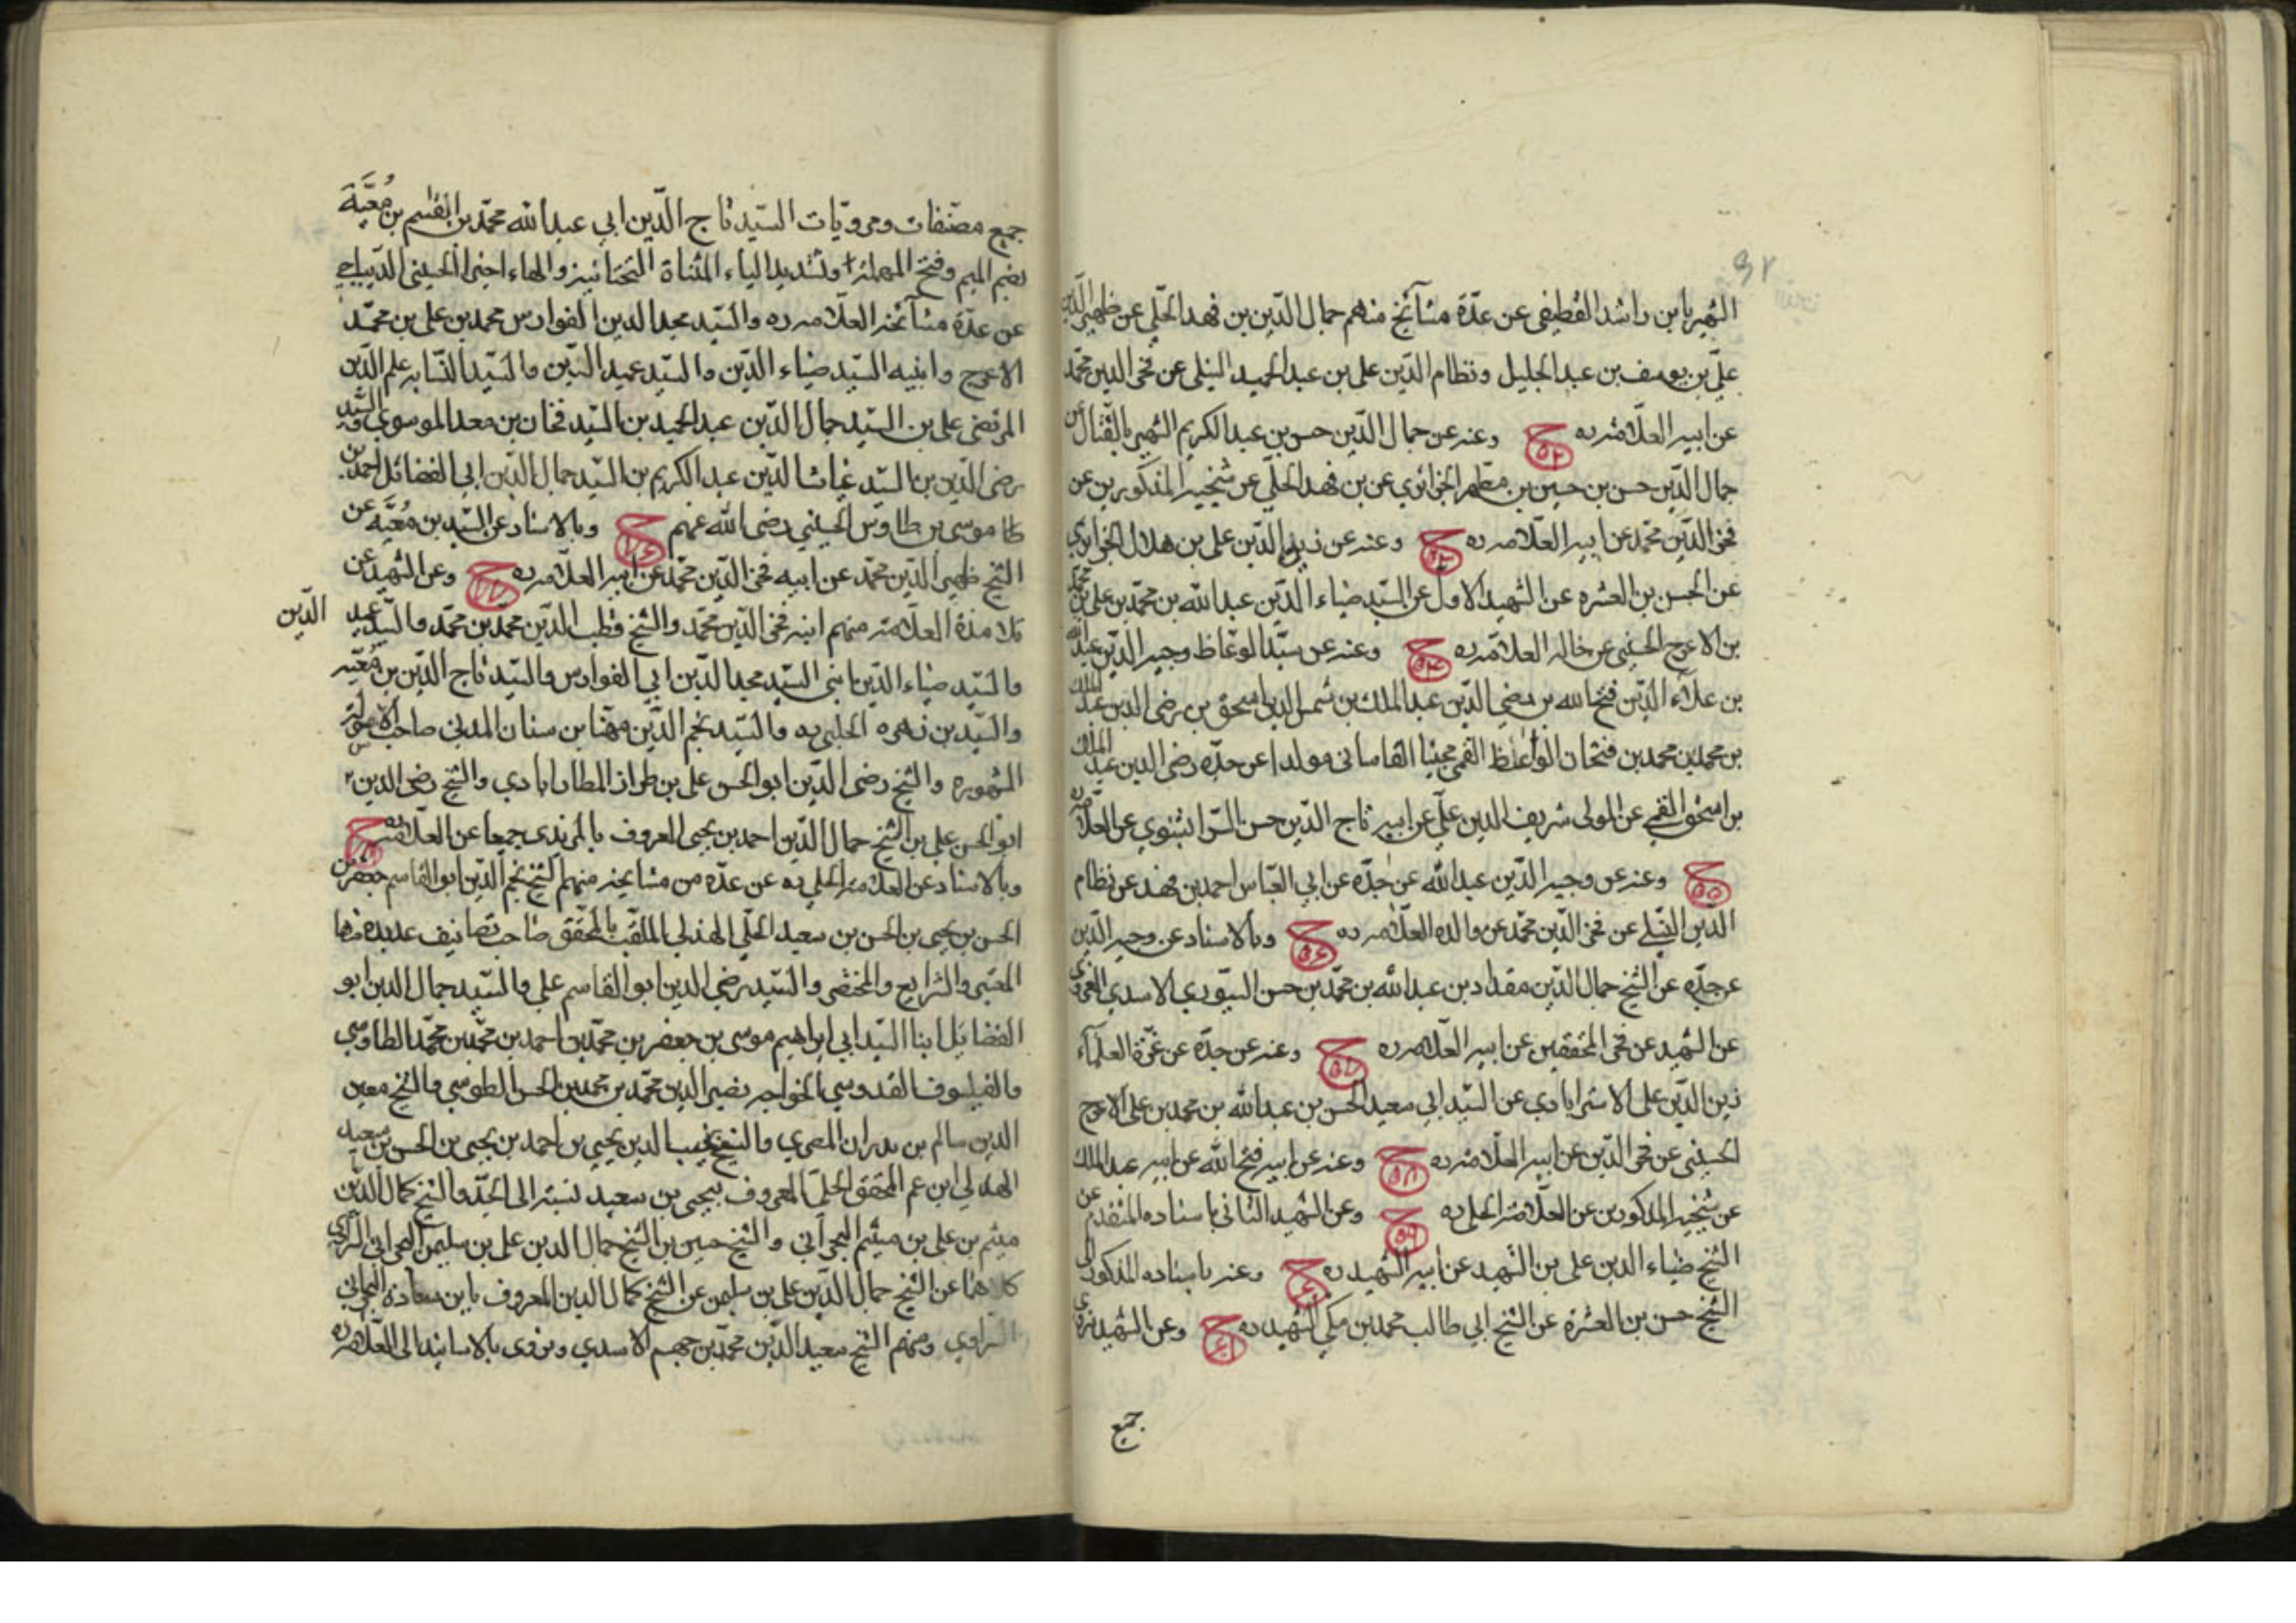 ٩٢
الشهير بابن راشد القطيفي عن عدّة مشآئخ منهم جمال الدّين بن فهد الحلّي عن ظهير الدّين
علّي بن يوسف بن عبد الجليل ونظام الدّين علي بن عبد الحميد النيلي عن فخر الدين محمّد
عن ابيه العلّامة ره ح ٥٢ وعنه عن جمال الدّين حسن بن عبد الكريم الشهير بالفتّال عن
جمال الدّين حسن بن حسين بن مطهر الجزائري عن بن فهد الحلّي عن شيخيه المذكورين عن
فخر الدّين محمّد عن ابيه العلّامه ره ح ٥٣ وعنه عن زين الدّين علي بن هلال الجزايري
عن الحسن بن العشره عن الشهيد الاول عن السيّد ضياء الدّين عبد الله بن محمّد بن علي بن محمّد
بن الاعرج الحسيني عن خاله العلامّه ره ح ٥٤ وعنه عن سيّد الوعّاظ وجيه الدّين عبد الله
بن علآء الدّين فتح الله بن رضي الدّين عبد الملك بن شمس الدين اسحق بن رضي الدين عبد الملك
بن محمد بن محمد بن فتحان الواعظ القمي محتدا القاساني مولدا عن جدّه رضي الدين عبد الملك
بن اسحق القمي عن المولى شريف الدين علّي عن ابيه تاج الدّين حسن السّرابشنوي عن العلّامه ره
ح ٥٥ وعنه عن وجيه الدّين عبد الله عن جدّه عن ابي العبّاس احمد بن فهد عن نظام
الدّين النّيلي عن فخر الدّين محمّد عن والده العلّامه ره ح ٥٦ وبالاسناد عن وجيه الدّين
عن جدّه عن الشيخ جمال الدّين مقداد بن عبد الله بن محمّد بن حسن السيّوري الاسدي الغروي
عن الشهيد عن فخر المحققين عن ابيه العلّامه ره ح ٥٧ وعنه عن جدّه عن غرّة العلمآء
زين الدّين علي الاسترابادي عن السّيد ابي سعيد الحسن بن عبد الله بن محمد بن علي الاعرج
الحسيني عن فخر الدّين عن ابيه العلّامه ره ح ٥٨ وعنه عن ابيه فتح الله عن ابيه عبد الملك
عن شيخيه المذكورين عن العلّامة الحلي ره ح ٥٩ وعن الشهيد الثاني باسناده المتقدم عن
الشيخ ضياء الدين علي بن الشهيد عن ابيه الشهيد ره ح ٦٠ وعنه باسناده المذكور الى
الشيخ حسن بن العشرة عن الشيخ ابي طالب محمد بن مكي الشهيد ره ح ٦١ وعن الشهيد نروي
جميع
جميع مصنّفات ومرويّات السيّد تاج الدّين ابي عبد الله محمّد بن القسم بن مُعَيَّة
بضم الميم وفتح المهملة وتشديد الياء المثناة التحتانية والهاء اخيرا الحسيني الديباجي
عن عدّة مشآئخه العلّامه ره والسّيد مجد الدين الفوارس محمد بن علي بن محمّد
الاعرج وابنيه السيّد ضياء الدّين والسيّد عميد الدّين والسّيد النسّابه علم الدّين
المرتضى علي بن السيّد جمال الدّين عبد الحميد بن السّيد فخار بن معد الموسوي والسّيد
رضي الدّين بن السيّد غياث الدّين عبد الكريم بن السيّد جمال الدّين ابي الفضائل احمد بن
موسى بن طاوس الحسيني رضي الله عنهم ح ٦٦ وبالاسناد عن السيّد بن مُعيَّه عن
الشيخ ظهير الدّين محمّد عن ابيه فخر الدّين محمّد عن ابيه العلّامه ره ح ٦٧ وعن الشهيد عن
تلامذة العلّامة منهم ابنه فخر الدّين محمّد والشيخ قطب الدّين محمّد بن محمّد والسيّد عميد الدّين
والسّيد ضياء الدّين ابني السيّد مجد الدّين ابي الفوارس والسّيد تاج الدّين بن مُعيّه
والسيّد بن زهره الحلبي ره والسّيد نجم الدّين مهنا بن سنان المدني صاحب الاسؤلة
المشهوره والشيخ رضي الدّين ابو الحسن علي بن طراز المطارابادي والشيخ رضي الدين
ابو الحسن علي بن الشيخ جمال الدّين احمد بن يحيى المعروف بالمزيدي جميعا عن العلّامة ره ح
وبالاسناد عن العلّامة الحلي ره عن عدّه من مشايخه منهم الشيخ نجم الدّين ابو القاسم جعفر بن
الحسن بن يحيى بن الحسن بن سعيد الحلّي الهذلي الملقّب بالمحقّق صاحب تصانيف عديده منها
المعتبر والشرايع والمختصر والسّيد رضي الدين ابو القاسم علي والسّيد جمال الدين ابو
الفضايل ابنا السّيد ابي ابراهيم موسى بن جعفر بن محمّد بن احمد بن محمّد بن محمّد الطاوسي
والفيلسوف القدوسي الخواجه نصير الدين محمّد بن محمد بن الحسن الطوسي والشيخ معين
الدين سالم بن بدران المصري والشيخ نجيب الدين يحيى بن احمد بن يحيى بن الحسن بن سعيد
الهذلي ابن عم المحقق الحلي المعروف بيحيى بن سعيد نسبة الى الجدّ والشيخ كمال الدّين
ميثم بن علي بن ميثم البحراني والشيخ حسين بن الشيخ جمال الدين علي بن سليمن البحراني
كلاهما عن الشيخ جمال الدّين علي بن سليمن عن الشيخ كمال الدين المعروف بابن سعادة البحراني
ومنهم الشيخ سعيد الدّين محمّد بن جهم الاسدي ونروي بالاسانيد الى العلّامه ره